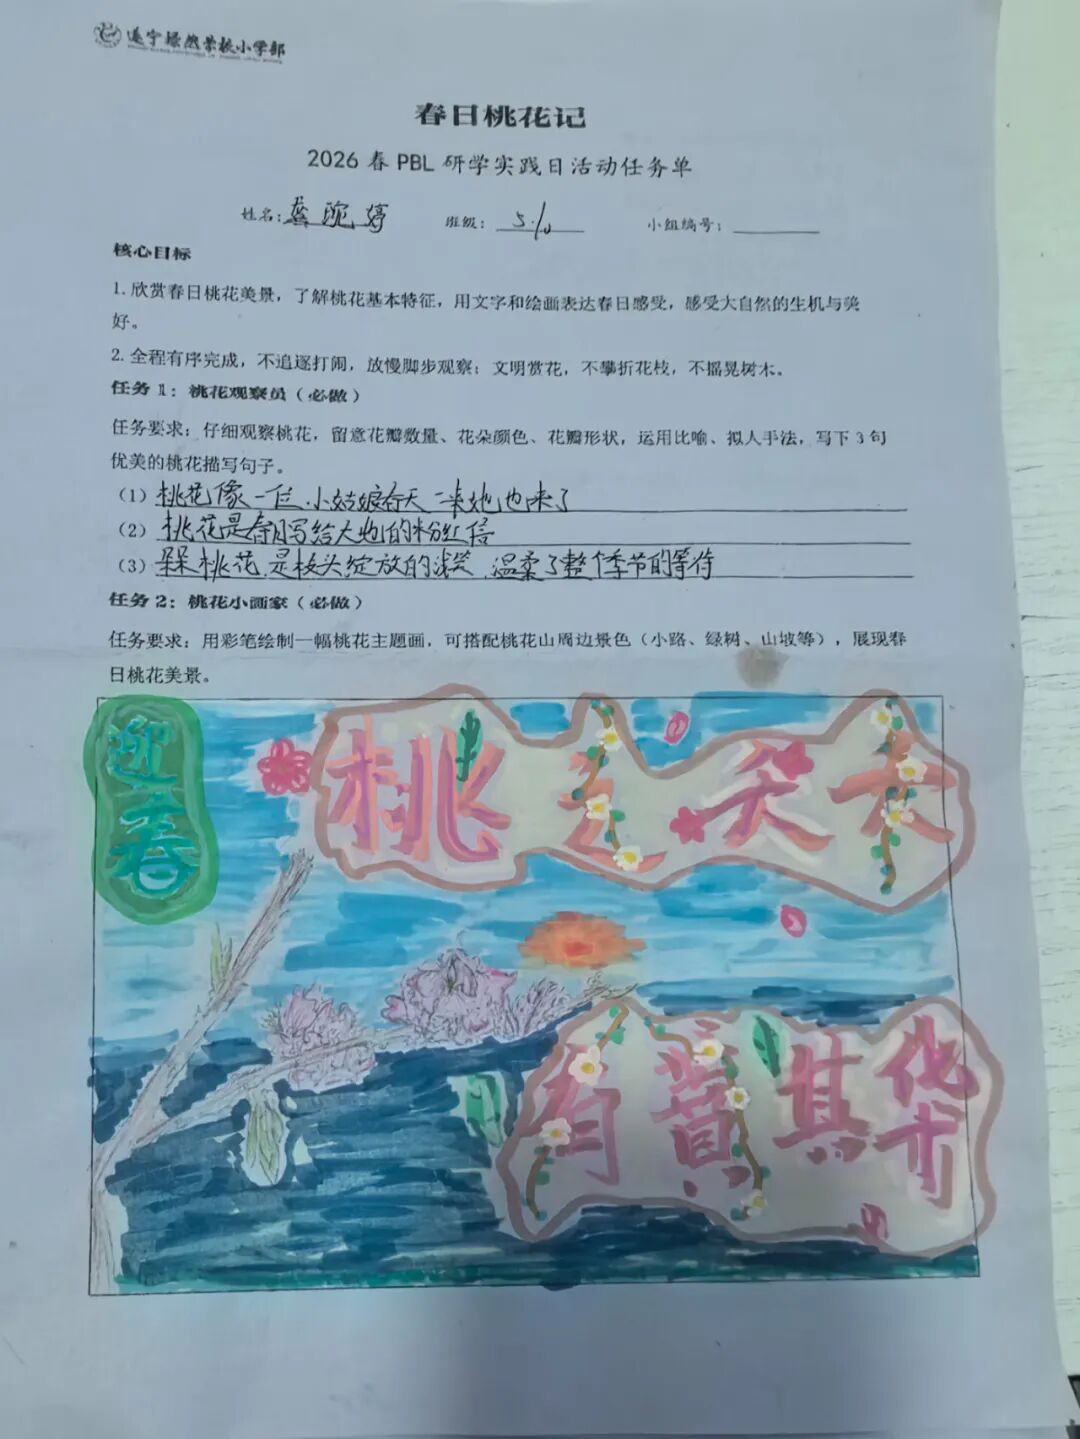 遂宁绿然学校小学部
春日桃花记
2026 春 PBL 研学实践日活动任务单
姓名：龚琬婷 班级： 5.10 小组编号：
核心目标
1. 欣赏春日桃花美景，了解桃花基本特征，用文字和绘画表达春日感受，感受大自然的生机与美
好。
2. 全程有序完成，不追逐打闹，放慢脚步观察；文明赏花，不攀折花枝，不摇晃树木。
任务 1：桃花观察员（必做）
任务要求：仔细观察桃花，留意花瓣数量、花朵颜色、花瓣形状，运用比喻、拟人手法，写下 3 句
优美的桃花描写句子。
（1）桃花像一位小姑娘春天一来她也来了
（2）桃花是春月写给大地的粉红信
（3）朵桃花是枝头绽放的浅笑 温柔了整个季节的等待
任务 2：桃花小画家（必做）
任务要求：用彩笔绘制一幅桃花主题画，可搭配桃花山周边景色（小路、绿树、山坡等），展现春
日桃花美景。
迎春
桃之夭夭
有蕡其华